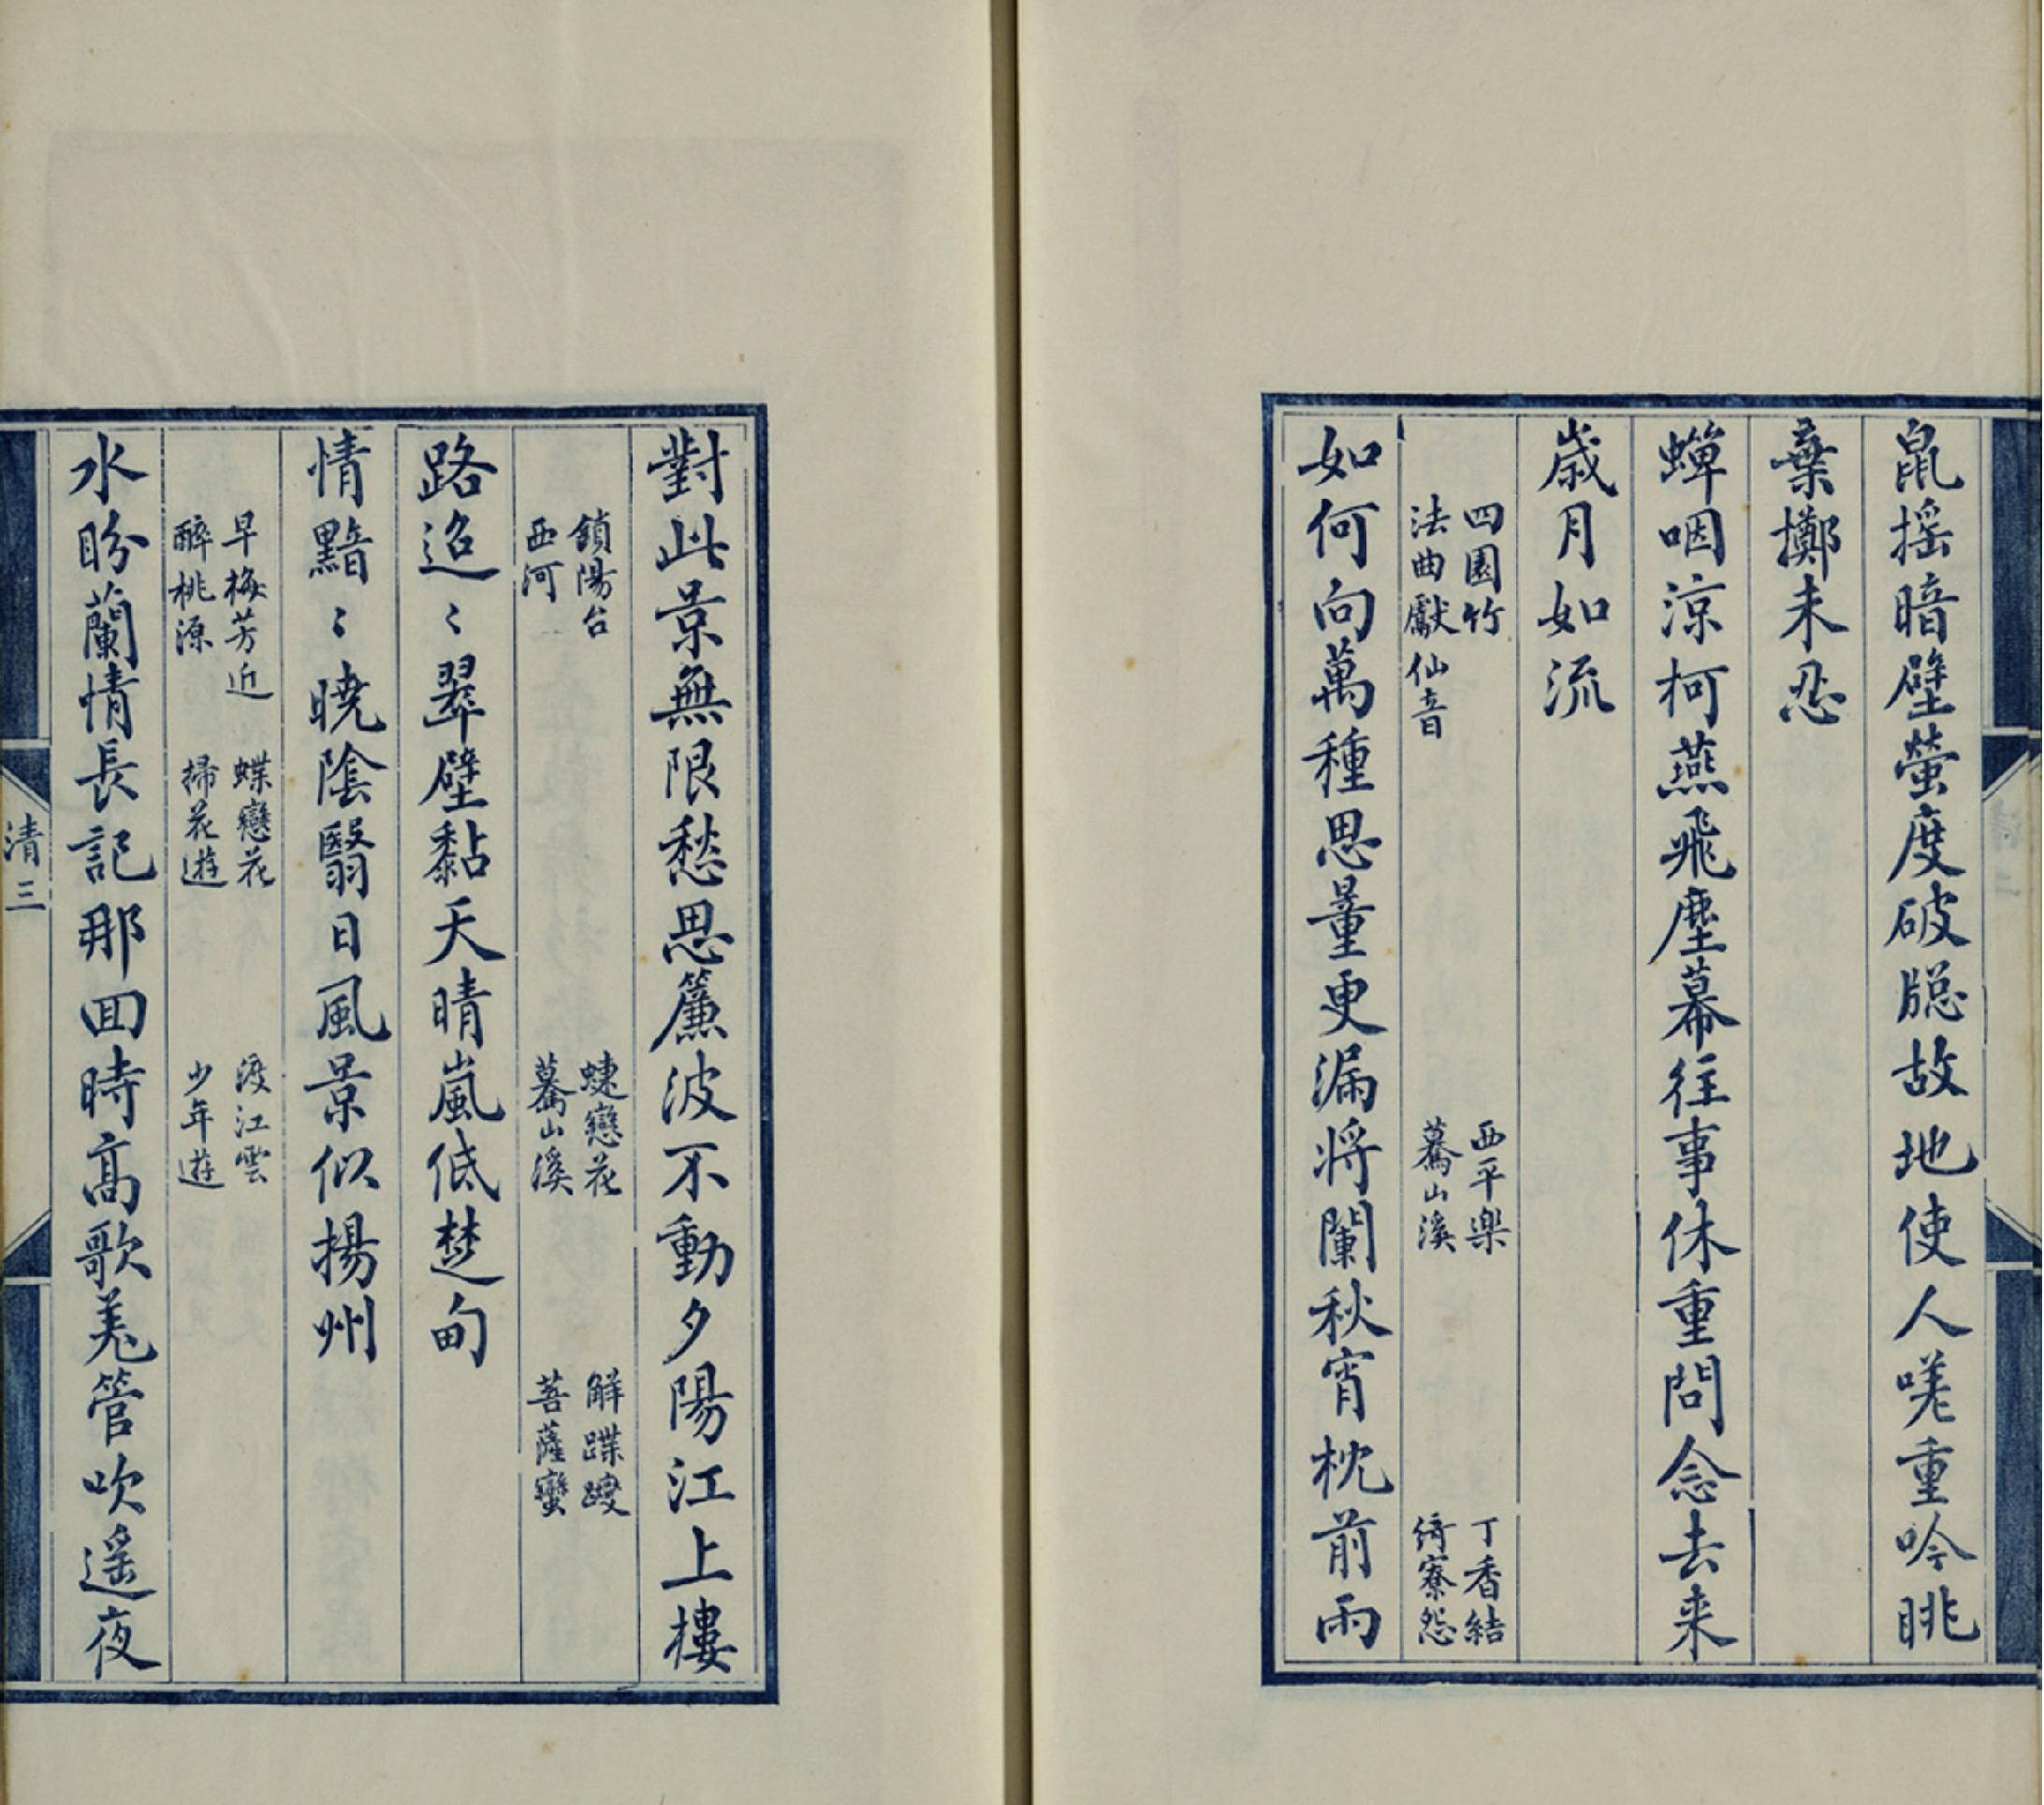 鼠搖暗壁螢度破牕故地使人嗟重吟眺
棄擲未忍
蟬咽涼柯燕飛塵幕往事休重問念去来
歳月如流
四園竹 西平樂 丁香結
法曲獻仙音 驀山溪 綺寮怨
如何向萬種思量更漏将闌秋宵枕前雨
對此景無限愁思簾波不動夕陽江上樓
鎖陽台 蜨戀花 解蹀躞
西河 驀山溪 菩薩蠻
路迢〻翠壁黏天晴嵐低楚甸
情黯〻曉陰翳日風景似揚州
早梅芳近 蝶戀花 渡江雲
醉桃源 掃花遊 少年遊
水盼蘭情長記那回時高歌羌管吹遥夜
清三